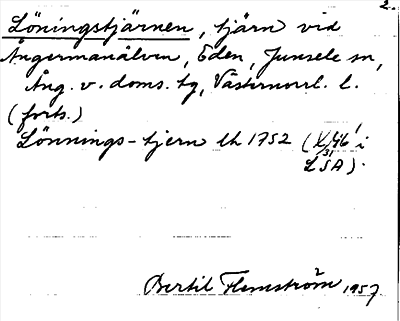 2.
Löningstjärnen, tjärn vid
Ångermanälven, Eden, Junsele sn,
Ång. v. doms. tg, Västernorrl. l.
(forts.)
Lönnings-tjern lh 1752 ( i
LSA).
Bertil Flemström 1957